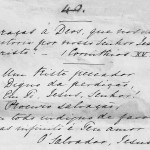 42.
raças á Deos, que nos
victoria por nosso Senhor Jesu
risto" I Corinthios XV
Um triste peccador
Digno da perdição,
Em Ti, Jesus, Senhor!
Procuro salvação,
todo indigno de favor
infinito é Teu amor
O Salvador, Jesus